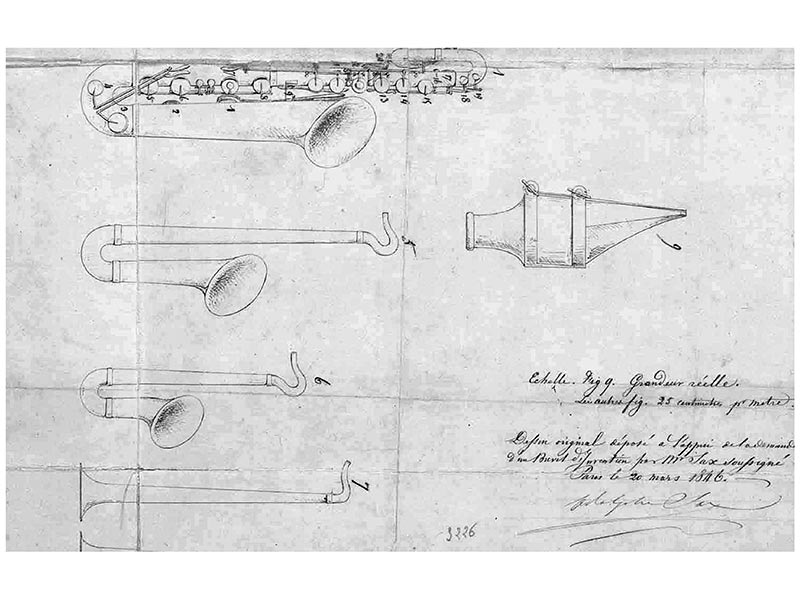 1
4 3 5 2 1 8 9 13 14 15 17 18 19
5
9
6
Echelle. Fig 9. Grandeur réelle.
Les autres fig. 25 centimètres pr mètre.
Dessin original déposé à l'appui de la demande
d'un Brevet d'Invention par Mr Sax soussigné
Paris le 20 mars 1846.
7
Adolphe Sax
3226